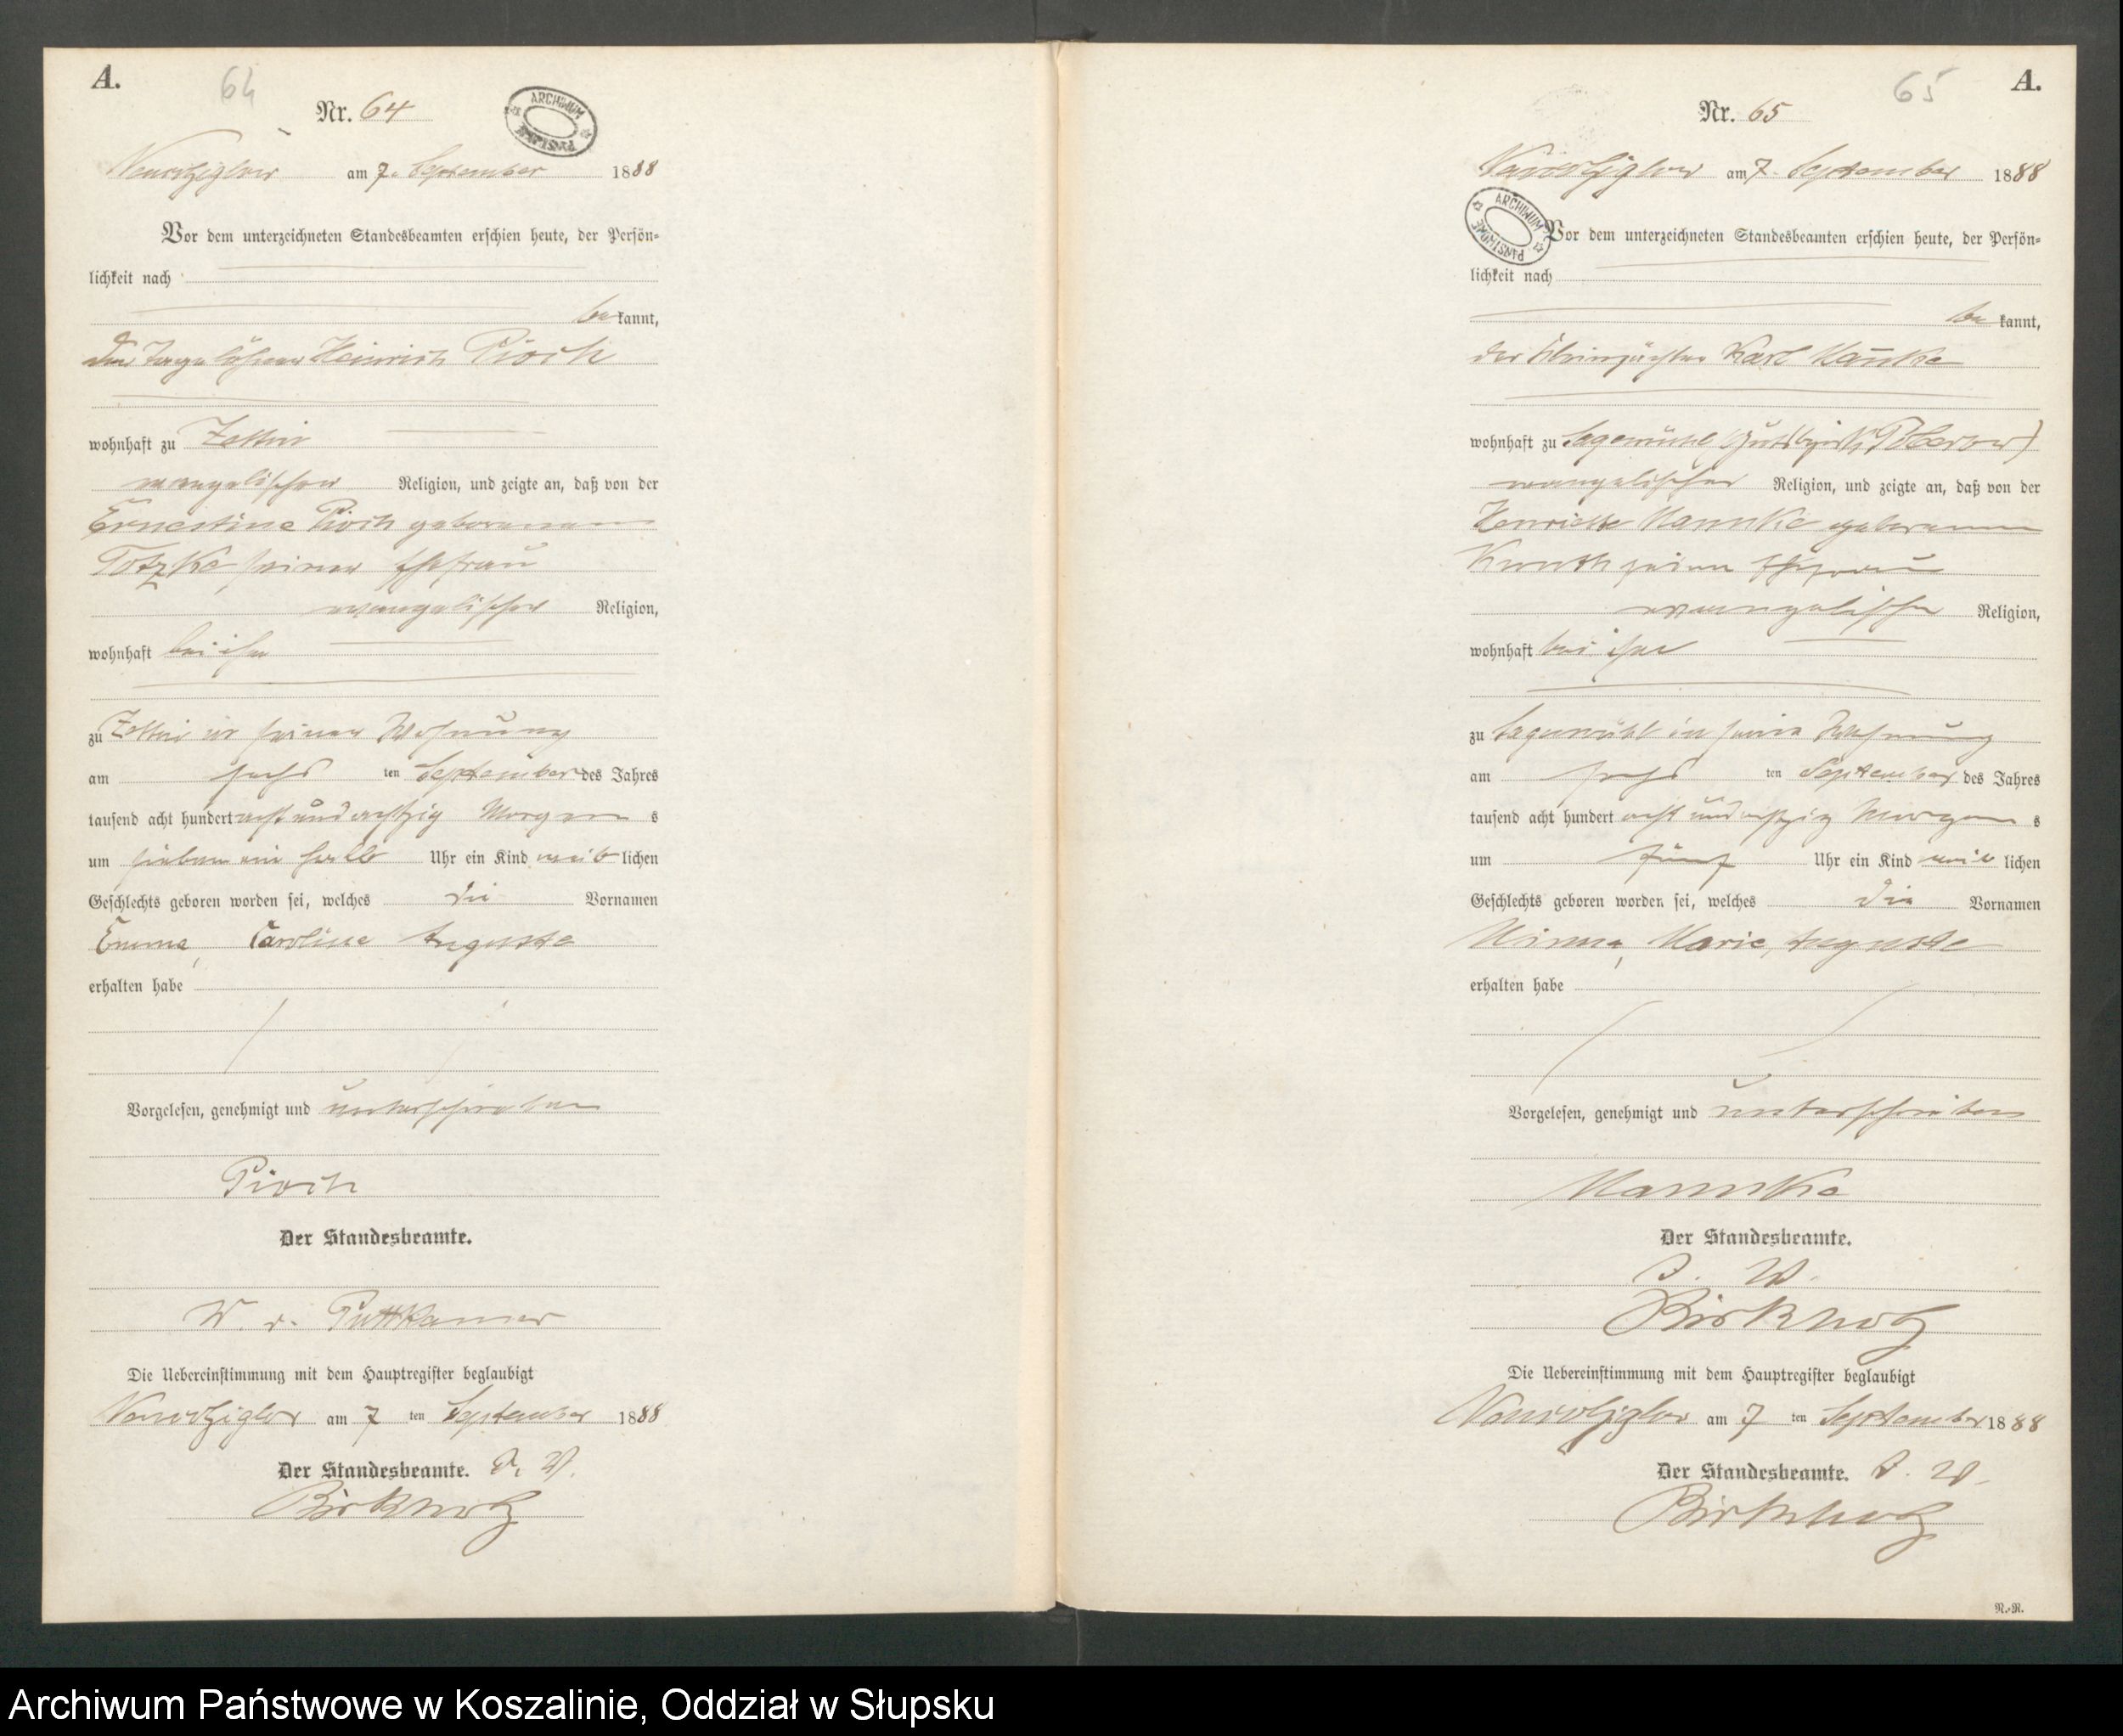 A.
64
Nr. 64
ARCHIWUM PAŃSTWOWE
am 7. September 1888
Vor dem unterzeichneten Standesbeamten erschien heute, der Persön-
lichkeit nach
be kannt,
der Tagelöhner Heinrich Pioch
wohnhaft zu Zettin
evangelischer Religion, und zeigte an, daß von der
Ernestine Pioch geborenen
Totzke, seiner Ehefrau
evangelischer Religion,
wohnhaft bei ihm
zu Zettin in seiner Wohnung
am sechs ten September des Jahres
tausend acht hundert acht und achtzig Morgen s
um sieben ein halb Uhr ein Kind weib lichen
Geschlechts geboren worden sei, welches die Vornamen
Emma, Caroline Auguste
erhalten habe
Vorgelesen, genehmigt und unterschrieben
Pioch
Der Standesbeamte.
W. v. Puttkamer
Die Uebereinstimmung mit dem Hauptregister beglaubigt
am 7 ten September 1888
Der Standesbeamte. I. V.
Birkholz
65
A.
Nr. 65
am 7. September 1888
ARCHIWUM PAŃSTWOWE
Vor dem unterzeichneten Standesbeamten erschien heute, der Persön-
lichkeit nach
be kannt,
der Karl
wohnhaft zu Sagemühl (Gutsbezirk Poberow)
evangelischer Religion, und zeigte an, daß von der
Henriette geborenen
seiner Ehefrau
evangelischer Religion,
wohnhaft bei ihm
zu Sagemühl in seiner Wohnung
am sechs ten September des Jahres
tausend acht hundert acht und achtzig Morgen s
um fünf Uhr ein Kind weib lichen
Geschlechts geboren worden sei, welches die Vornamen
Minna, Marie, Auguste
erhalten habe
Vorgelesen, genehmigt und unterschrieben
Der Standesbeamte.
I. V.
Birkholz
Die Uebereinstimmung mit dem Hauptregister beglaubigt
am 7 ten September 1888
Der Standesbeamte. I. V.
Birkholz
N.-N.
Archiwum Państwowe w Koszalinie, Oddział w Słupsku